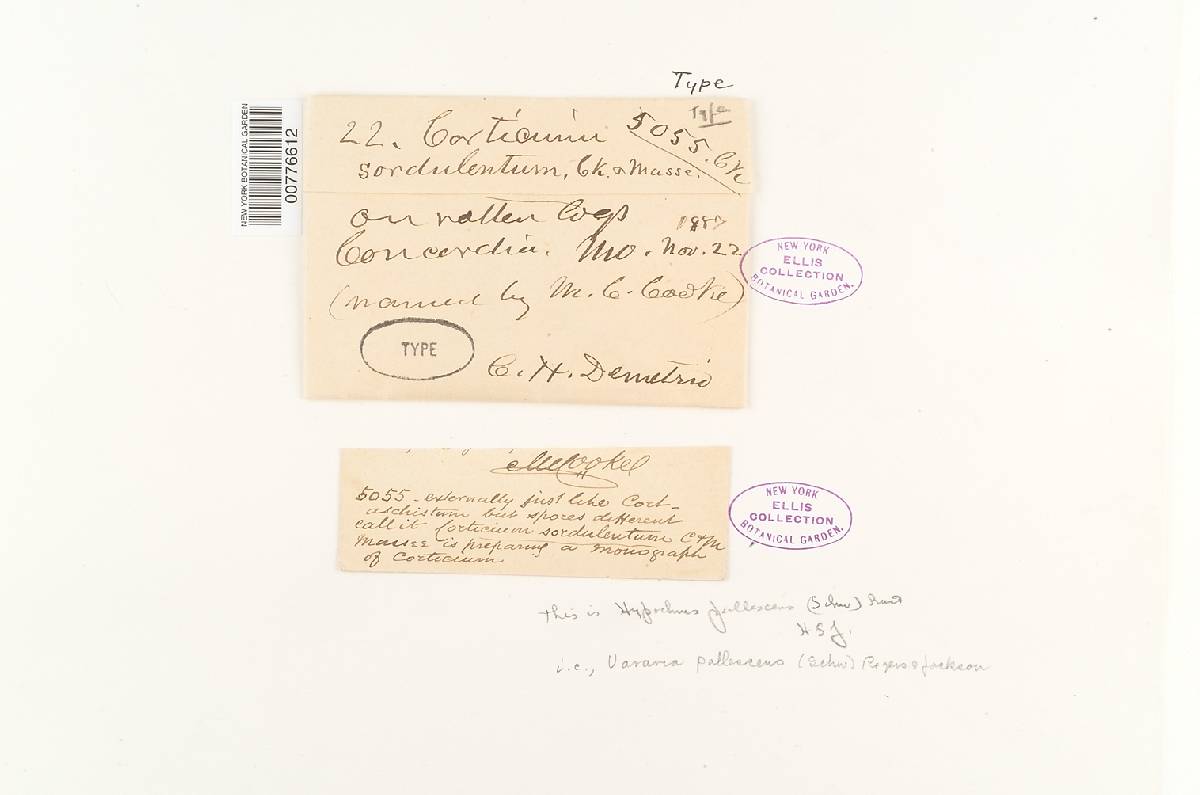 Type
Type
22. Corticium 5055. Ck
sordulentum, Ck. & Masse.
on rotten logs 1887
Concordia. Mo. Nov. 22
(named by M. C. Cooke)
TYPE
C. H. Demetrio
NEW YORK BOTANICAL GARDEN
00776612
NEW YORK
ELLIS
COLLECTION
BOTANICAL GARDEN.
MCCooke
5055 - externally just like Cort-
but spores different
call it Corticium sordulentum C & M
Massee is preparing a monograph
of Corticium.
NEW YORK
ELLIS
COLLECTION
BOTANICAL GARDEN.
This is Hypochnus pallescens (Schw) Burt
H S J.
i.e., Vararia pallescens (Schw) Rogers & Jackson